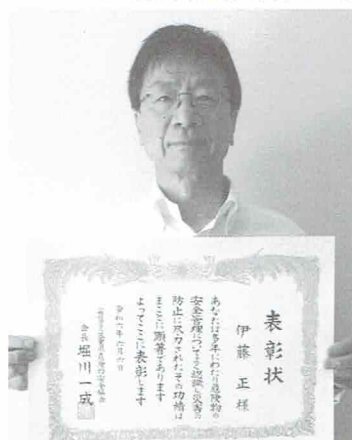 表彰状
伊藤 正 様
あなたは多年にわたり危険物の
安全管理についてよく認識し災害の
防止に尽力されたその功績は
まことに顕著であります
よってここに表彰します
令和六年六月
会長 堀川一成